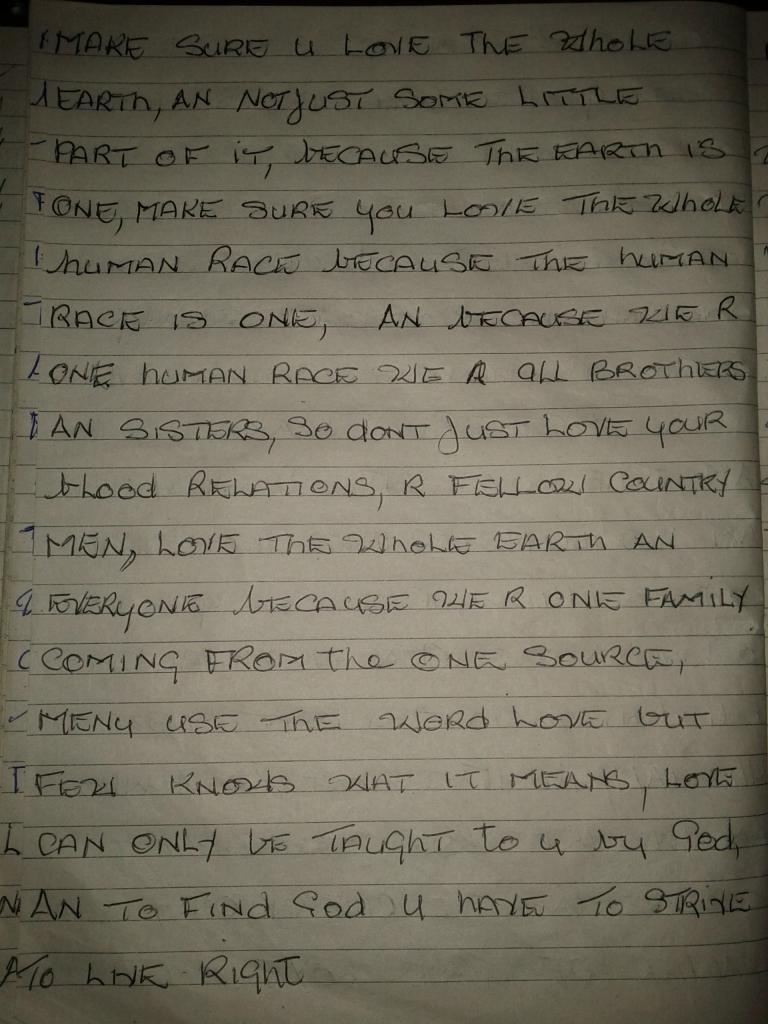 MAKE SURE U LOVE THE WHOLE
EARTH, AN NOT JUST SOME LITTLE
PART OF iT, bECAUSE THE EARTH IS
ONE, MAKE SURE you LOVE THE WHOLE
hUMAN RACE bECAUSE THE hUMAN
RACE IS ONE, AN bECAUSE WE R
ONE hUMAN RACE WE R ALL BROTHERS
AN SISTERS, SO dONT JUST LOVE yOUR
blood RELATIONS, R FELLOW COUNTRY
MEN, LOVE THE WHOLE EARTH AN
EVERyONE bECAUSE WE R ONE FAMILY
COMING FROM The ONE SOURCE,
MENy USE THE WORd LOVE bUT
FEW KNOWS WAT IT MEANS, LOVE
CAN ONLY bE TAUGhT to u by God,
AN TO FINd God U hAVE TO STRIVE
TO LIVE RIGhT